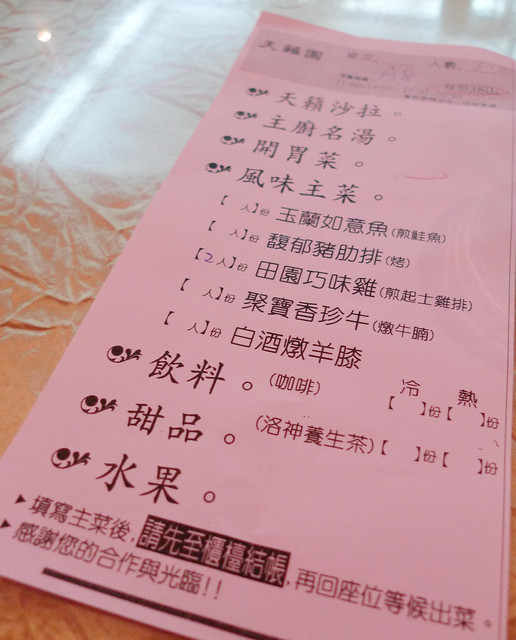 天籟園 桌次: 人數:
A8
每份380元
天籟沙拉。
主廚名湯。
開胃菜。
風味主菜。
【 人】份 玉蘭如意魚(煎鮭魚)
【 人】份 馥郁豬肋排(烤)
【2人】份 田園巧味雞(煎起士雞排)
【 人】份 聚寶香珍牛(燉牛腩)
【 人】份 白酒燉羊膝
冷 熱
飲料。(咖啡)【 】份【 】份
甜品。(洛神養生茶)【 】份【 】份
水果。
▶填寫主菜後,請先至櫃檯結帳,再回座位等候出菜。
▶感謝您的合作與光臨!!